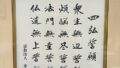 四弘誓願
衆生無邊誓願度
煩悩無盡誓願断
法門無量誓願学
仏道無上誓願成